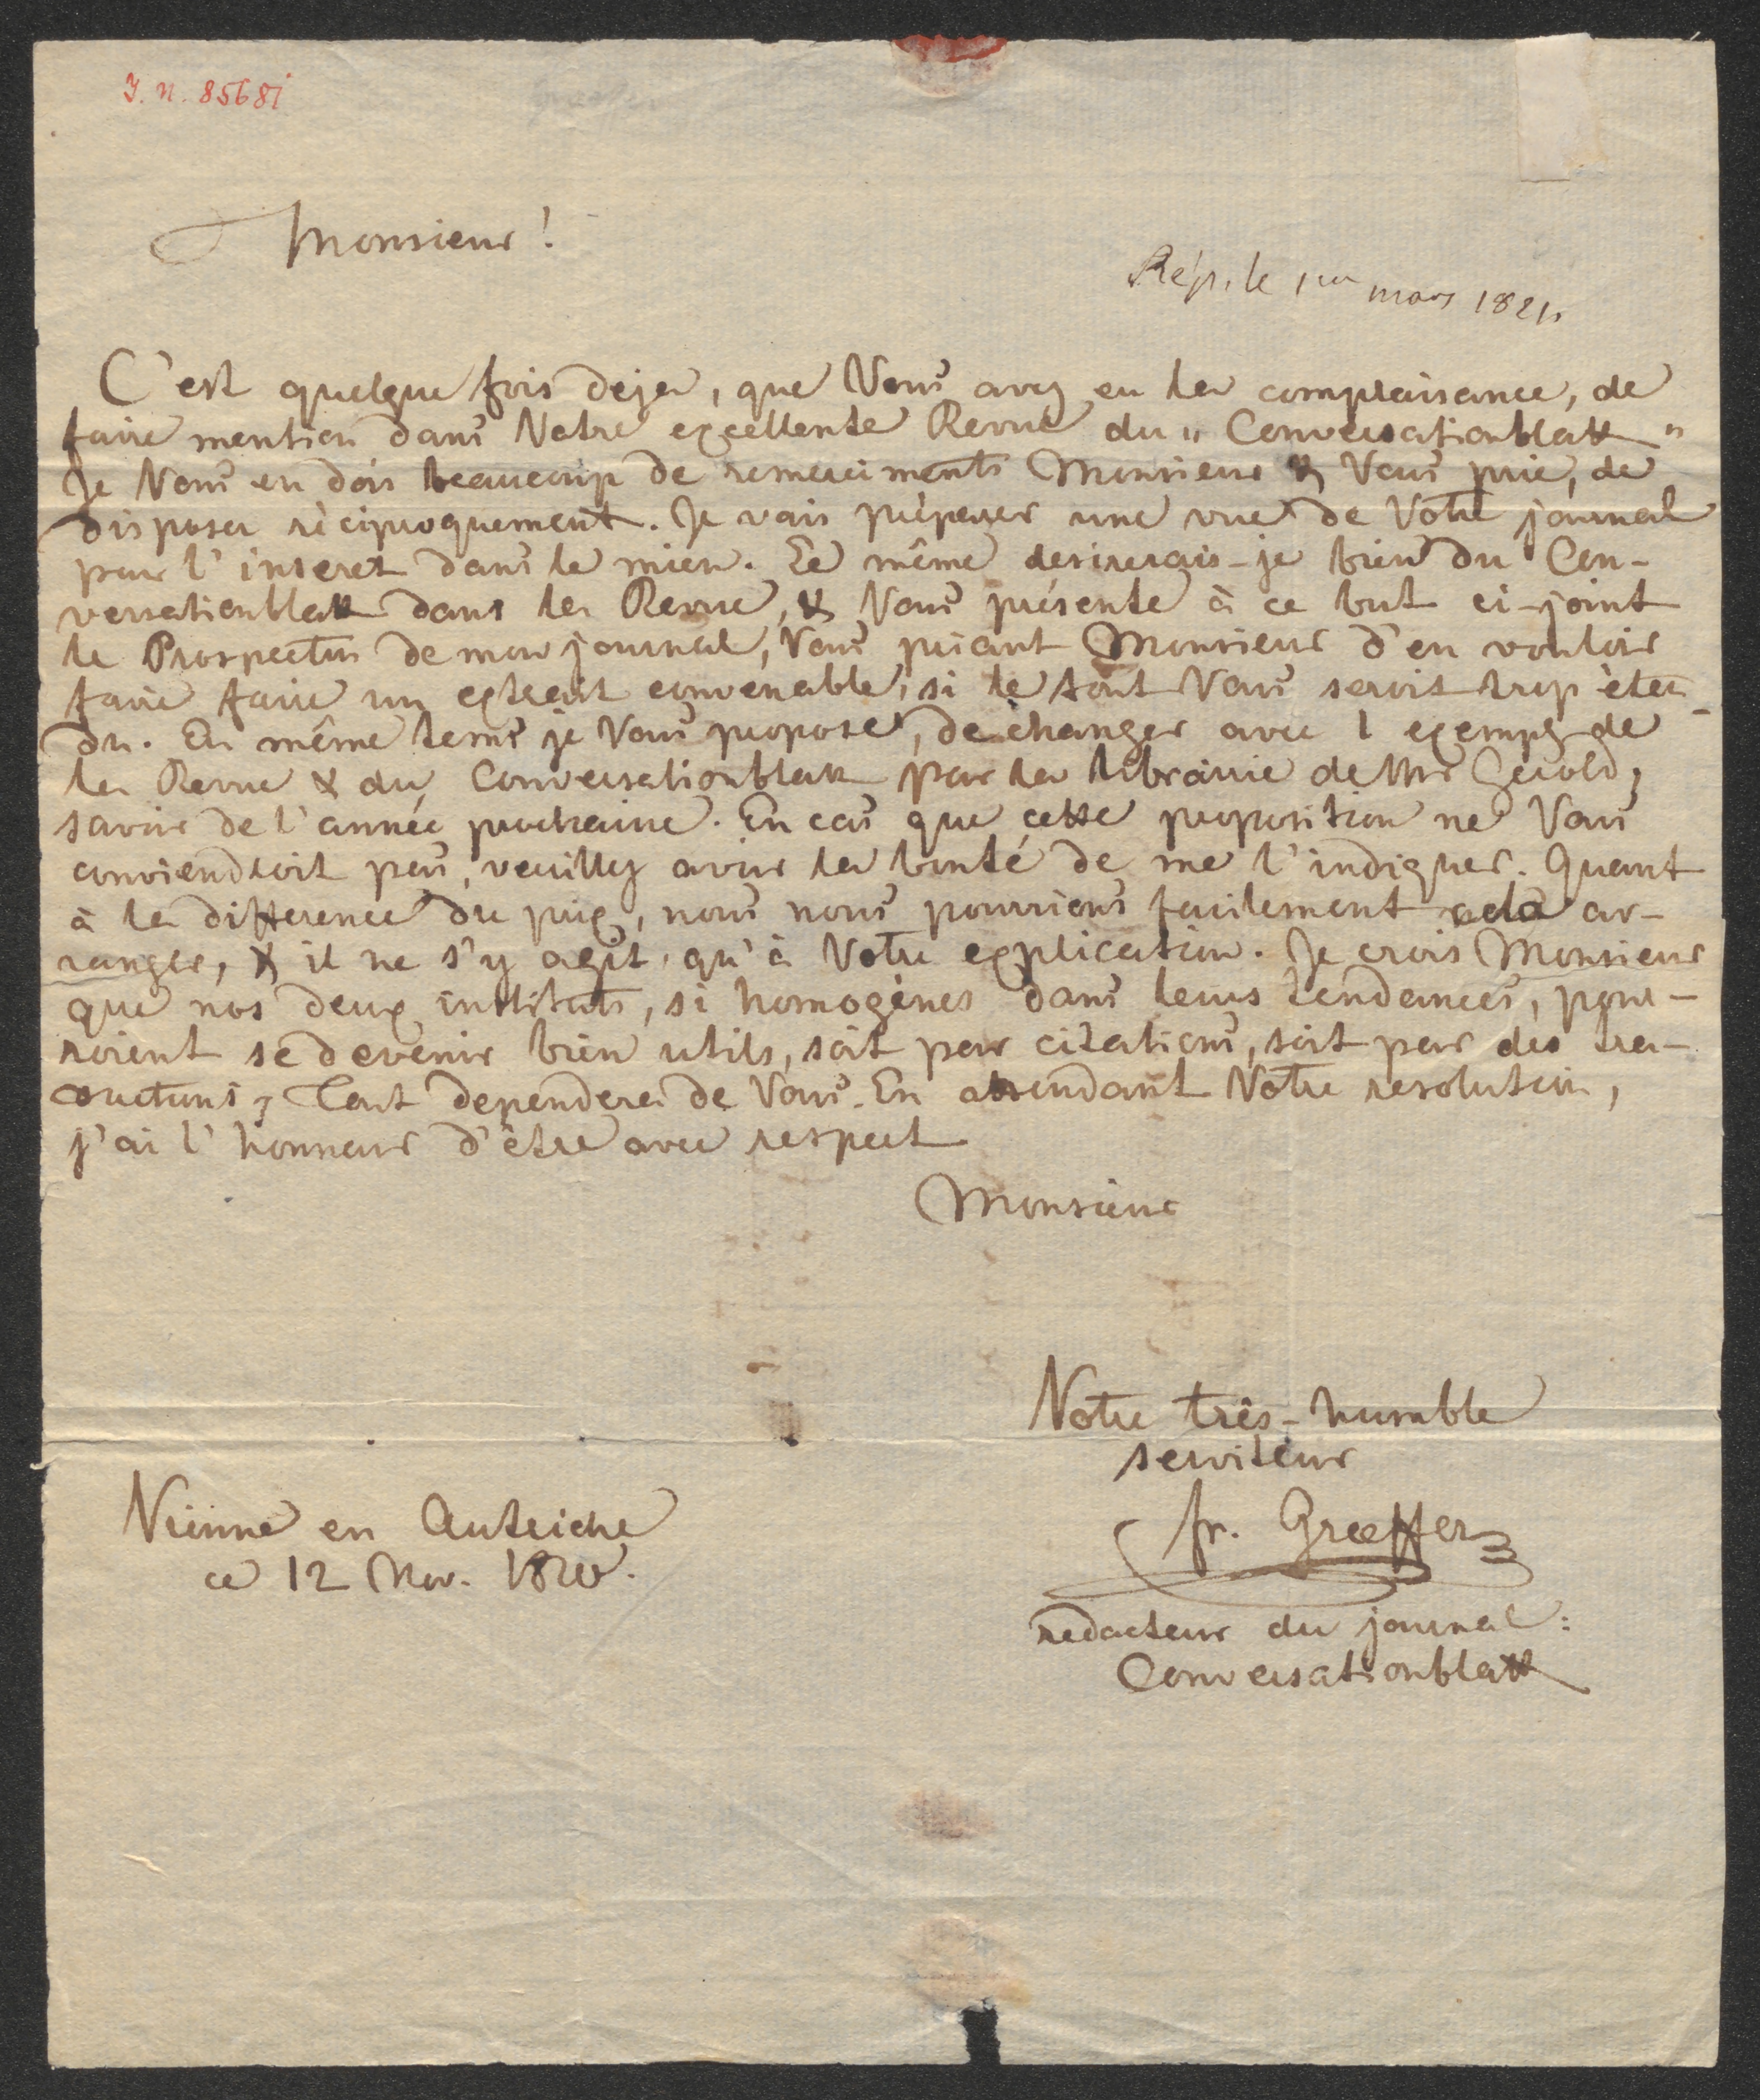 I. N. 85681
Monsieur!
Rép. le 1er mars 1821.
C'est quelque fois deja, que Vous avez eu la complaisance, de
faire mention dans Votre excellente Revue du „Conversationblatt"
Je Vous en dois beaucoup de remerciments Monsieur & Vous prie, de
disposer réciproquement. Je vais préparer une vue de Votre journal
pour l'inseret dans le mien. Le même desirerais-je bien du Con-
versationblatt dans la Revue, & Vous présente à ce but ci-joint
le Prospectus de mon journal, Vous priant Monsieur d'en vouloir
faire faire un extrait convenable, si le tout Vous seroit trop éten-
du. En même tems je Vous propose, de changer avec 1 exempl de
la Revue & du Conversationblatt par la librairie de Mr Gerold,
savoir de l'année prochaine. En cas que cette proposition ne Vous
conviendroit pas, veuillez avoir la bonté de me l'indiquer. Quant
à la difference du prix, nous nous pourrions facilement cela ar-
ranger, & il ne s'y agit, qu'à Votre explication. Je crois Monsieur
que nos deux instituts, si homogènes dans leurs tendances, pour-
roient se devenir bien utils, soit par citations, soit par des tra-
ductions, Tout dependera de Vous. En attendant Votre resolution,
j'ai l'honneur d'être avec respect
Monsieur
Votre très-humble
serviteur
Fr. Graeffer
redacteur du journal:
Conversationblatt
Vienne en Autriche
ce 12 Nov. 1820.